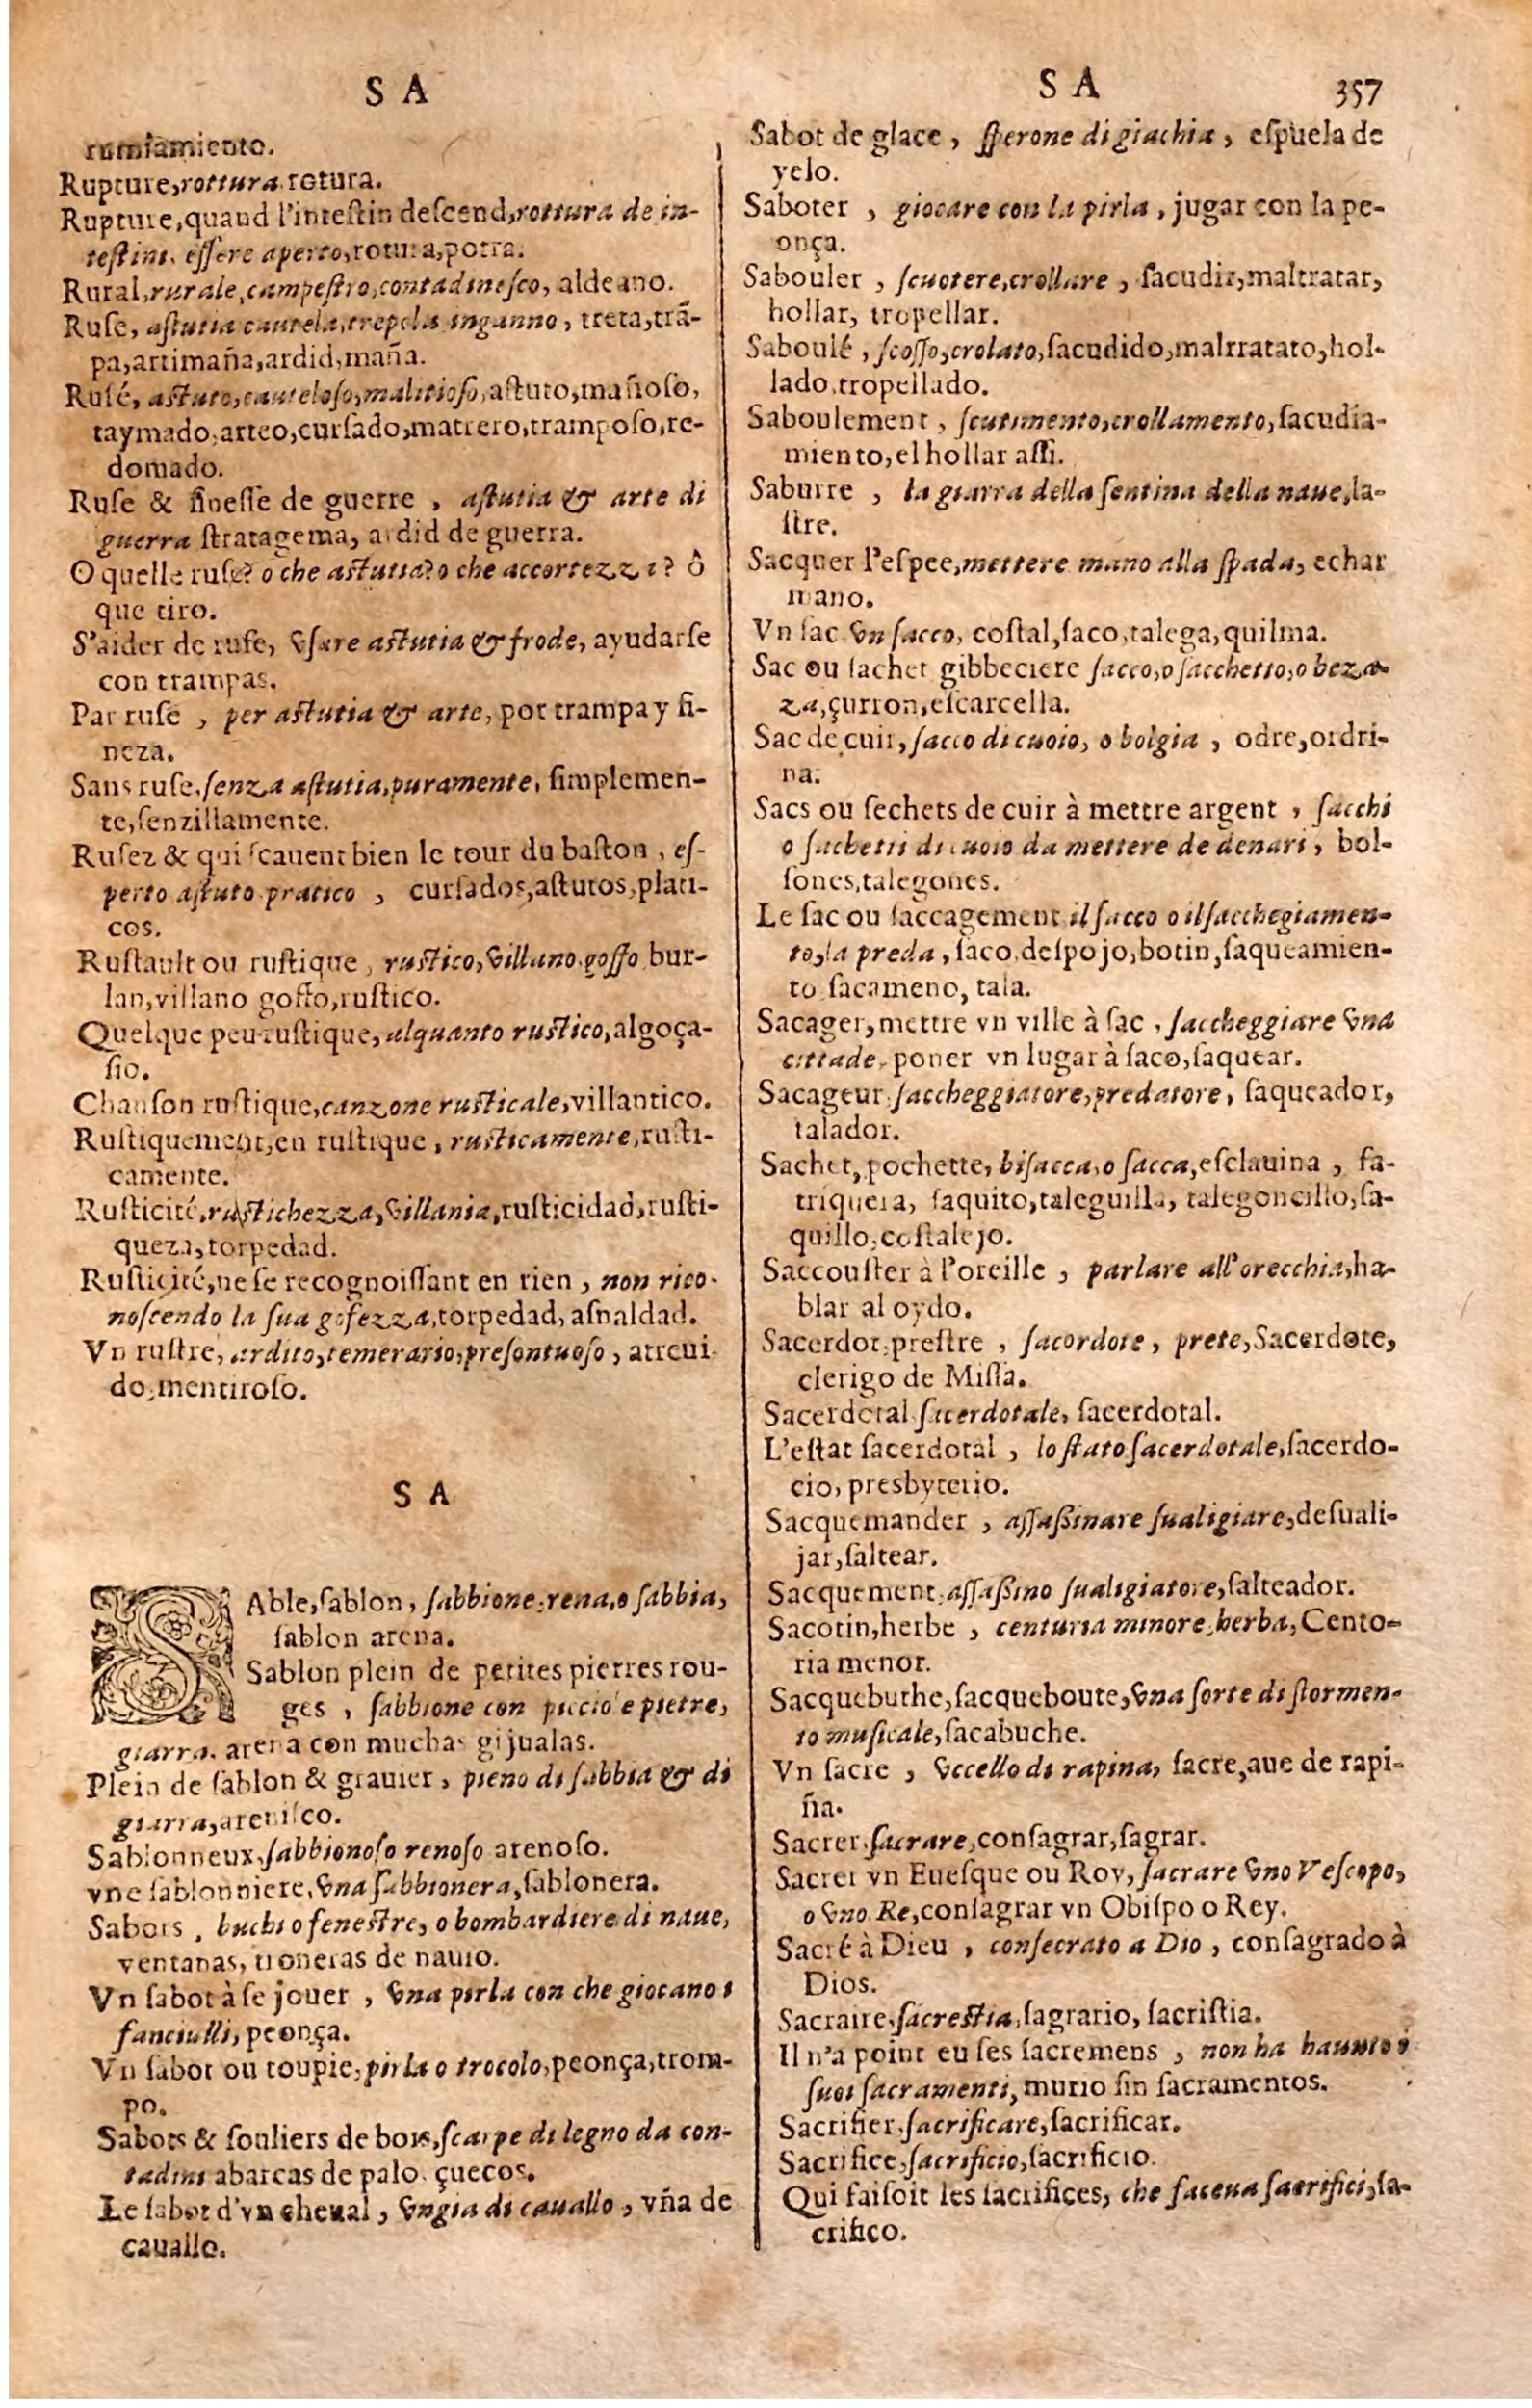 S A
rumiamiento.
Rupture, rottura. rotura.
Rupture, quand l'intestin descend, rottura de in-
testini. essere aperto, rotura, potra.
Rural, rurale, campestro, contadinesco, aldeano.
Ruse, astutia cautela, trepola inganno, treta, trã-
pa, artimaña, ardid, maña.
Rusé, astuto, cauteloso, malitioso, astuto, mañoso,
taymado, arteo, cursado, matrero, tramposo, re-
domado.
Ruse & finesse de guerre, astutia & arte di
guerra stratagema, ardid de guerra.
O quelle ruse? o che astutia? o che accortezza? ô
que tiro.
S'aider de ruse, vsare astutia & frode, ayudarse
con trampas.
Par ruse, per astutia & arte, por trampa y fi-
neza.
Sans ruse, senza astutia, puramente, simplemen-
te, senzillamente.
Rusez & qui scauent bien le tour du baston, es-
perto astuto pratico, cursados, astutos, plati-
cos.
Rustault ou rustique, rustico, villano goffo bur-
lan, villano goffo, rustico.
Quelque peu rustique, alquanto rustico, algo ça-
fio.
Chanson rustique, canzone rusticale, villantico.
Rustiquement, en rustique, rusticamente, rusti-
camente.
Rusticité, rustichezza, villania, rusticidad, rusti-
queza, torpedad.
Rusticité, ne se recognoissant en rien, non rico-
noscendo la sua gofezza, torpedad, asnaldad.
Vn rustre, ardito, temerario, presontuoso, atreui-
do, mentiroso.
S A
SAble, sablon, sabbione, rena, o sabbia,
sablon arena.
Sablon plein de petites pierres rou-
ges, sabbione con picciole pietre,
giarra. arena con muchas gijualas.
Plein de sablon & grauier, pieno di sabbia & di
giarra, arenisco.
Sablonneux, sabbionoso renoso arenoso.
vne sablonniere, vna sabbionera, sablonera.
Sabors, buchi o fenestre, o bombardiere di naue,
ventanas, troneras de nauio.
Vn sabot à se jouer, vna pirla con che giocano i
fanciulli, peonça.
Vn sabot ou toupie, pirla o trocolo, peonça, trom-
po.
Sabots & souliers de bois, scarpe di legno da con-
tadini abarcas de palo. çuecos.
Le sabot d'vn cheual, vngia di cauallo, vña de
cauallo.
S A 357
Sabot de glace, sperone di giachia, espuela de
yelo.
Saboter, giocare con la pirla, jugar con la pe-
onça.
Sabouler, scuotere, crollare, sacudir, maltratar,
hollar, tropellar.
Saboulé, scosso, crolato, sacudido, malrratato, hol-
lado, tropellado.
Saboulement, scutimento, crollamento, sacudia-
miento, el hollar assi.
Saburre, la giarra della sentina della naue, la-
stre.
Sacquer l'espee, mettere mano alla spada, echar
mano.
Vn sac vn sacco, costal, saco, talega, quilma.
Sac ou sachet gibbeciere sacco, o sacchetto, o beza-
za, çurron, escarcella.
Sac de cuir, sacco di cuoio, o bolgia, odre, ordri-
na.
Sacs ou sechets de cuir à mettre argent, sacchi
o sachetti di cuoio da mettere de denari, bol-
sones, talegones.
Le sac ou saccagement il sacco o il sacchegiamen-
to, la preda, saco, despojo, botin, saqueamien-
to sacameno, tala.
Sacager, mettre vn ville à sac, saccheggiare vna
cittade, poner vn lugar à saco, saquear.
Sacageur, saccheggiatore, predatore, saqueador,
talador.
Sachet, pochette, bisacca, o sacca, esclauina, fa-
triquera, saquito, taleguilla, talegoncillo, sa-
quillo, costalejo.
Saccouster à l'oreille, parlare all'orecchia, ha-
blar al oydo.
Sacerdot, prestre, sacordote, prete, Sacerdote,
clerigo de Missa.
Sacerdotal sacerdotale, sacerdotal.
L'estat sacerdotal, lo stato sacerdotale, sacerdo-
cio, presbyterio.
Sacquemander, assaßinare sualigiare, desuali-
jar, saltear.
Sacquement, assaßino sualigiatore, salteador.
Sacotin, herbe, centuria minore, herba, Cento-
ria menor.
Sacquebuthe, sacqueboute, vna sorte di stormen-
to musicale, sacabuche.
Vn sacre, vccello di rapina, sacre, aue de rapi-
ña.
Sacrer, sacrare, consagrar, sagrar.
Sacrer vn Euesque ou Roy, sacrare vno Vescopo,
o vno Re, consagrar vn Obispo o Rey.
Sacré à Dieu, consecrato a Dio, consagrado à
Dios.
Sacraire, sacrestia, sagrario, sacristia.
Il n'a point eu ses sacremens, non ha haunto i
suoi sacramenti, murio sin sacramentos.
Sacrifier, sacrificare, sacrificar.
Sacrifice, sacrificio, sacrificio.
Qui faisoit les sacrifices, che faceua sacrifici, sa-
crifico.